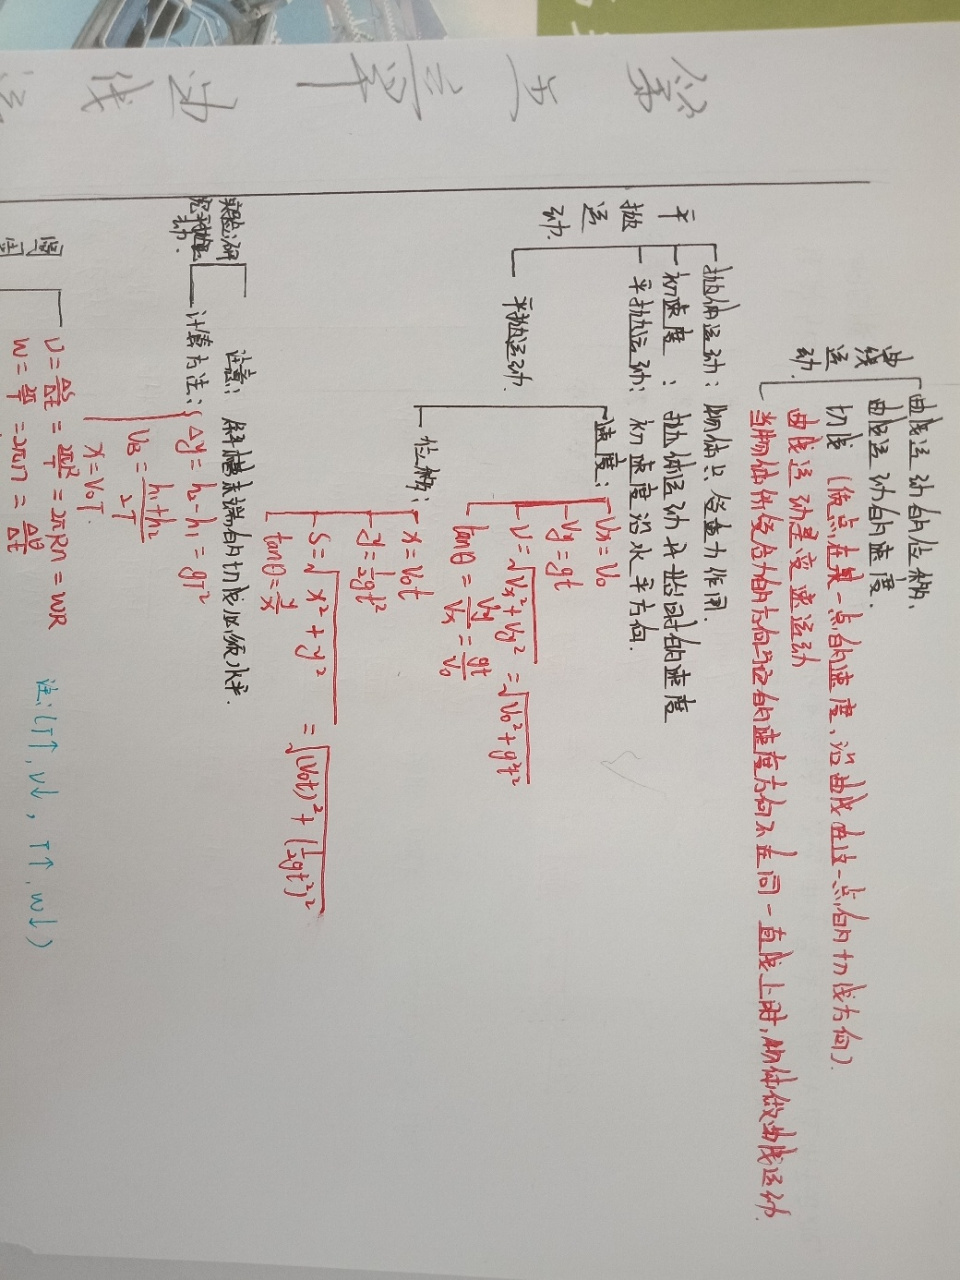 第五章 曲线运
曲线运动
曲线运动的位移.
曲线运动的速度.
切线 (质点在某一点的速度,沿曲线在这一点的切线方向).
曲线运动是变速运动
当物体所受合力的方向与它的速度方向不在同一直线上时,物体做曲线运动.
平抛运动.
抛体运动: 物体只受重力作用.
初速度: 抛体运动开始时的速度
平抛运动: 初速度沿水平方向.
平抛运动.
速度:
Vx=V₀
Vy=gt
V=√(Vx²+Vy²) =√(V₀²+g²t²)
tanθ=Vy/Vx=gt/V₀
位移:
x=V₀t
y=1/2gt²
S=√(x²+y²) =√((V₀t)²+(1/2gt²)²)
tanθ=y/x
实验:研究平抛运动.
注意: 斜槽末端的切线必须水平.
计算方法:
Δy=h₂-h₁=gT²
VB=(h₁+h₂)/2T
x=V₀T.
圆周
V=Δs/Δt=2πR/T=2πRn=WR
W=2π/T=2πn=Δθ/Δt
注:(T↑,V↓, T↑,W↓)